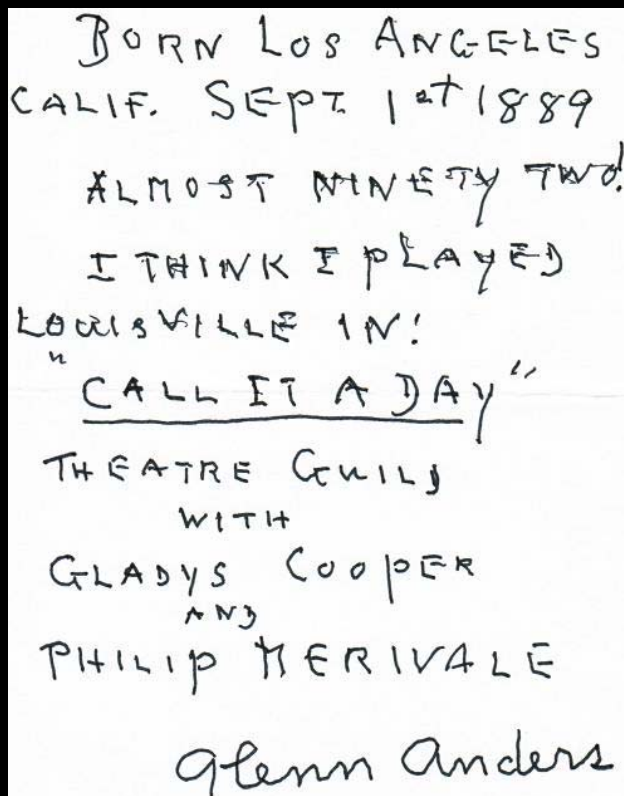 BORN LOS ANGELES
CALIF. SEPT. 1st 1889
ALMOST NINETY TWO!
I THINK I PLAYED
LOUISVILLE IN!
"CALL IT A DAY"
THEATRE GUILD
WITH
GLADYS COOPER
AND
PHILIP MERIVALE
Glenn Anders